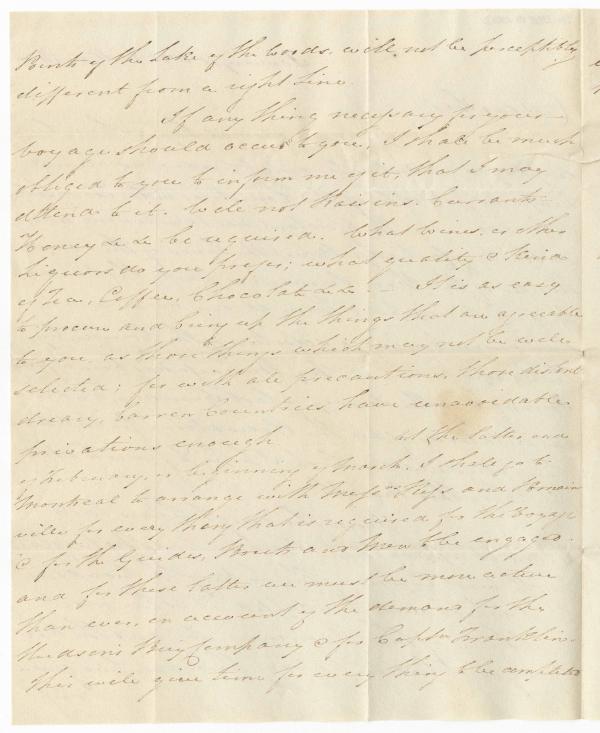 Point of the Lake of the Woods, will not be perceptibly
different from a right Line.
If any thing necessary for your
voyage should occur to you, I shall be much
obliged to you to inform me of it, that I may
attend to it. Will not Raisins, Currants
Honey &c &c be required. What Wines, or other
Liquors do you prefer; what quality & kind
of Tea, Coffee, Chocolate &c. – It is as easy
to procure and bring up the things that are agreeable
to you, as those things which may not be well
selected; for with all precautions, those distant
dreary, barren Countries have unavoidable
privations enough at the latter end
of February, or beginning of March, I shall go to
Montreal to arrange with Messrs and
ville for every thing that is required for the Voyage
& for the Guides, and Men to be engaged.
and for these latter we must be more active
than ever, on account of the demand for the
Hudson's Bay Company & for Captn Franklin.
This will give time for every thing to be completed